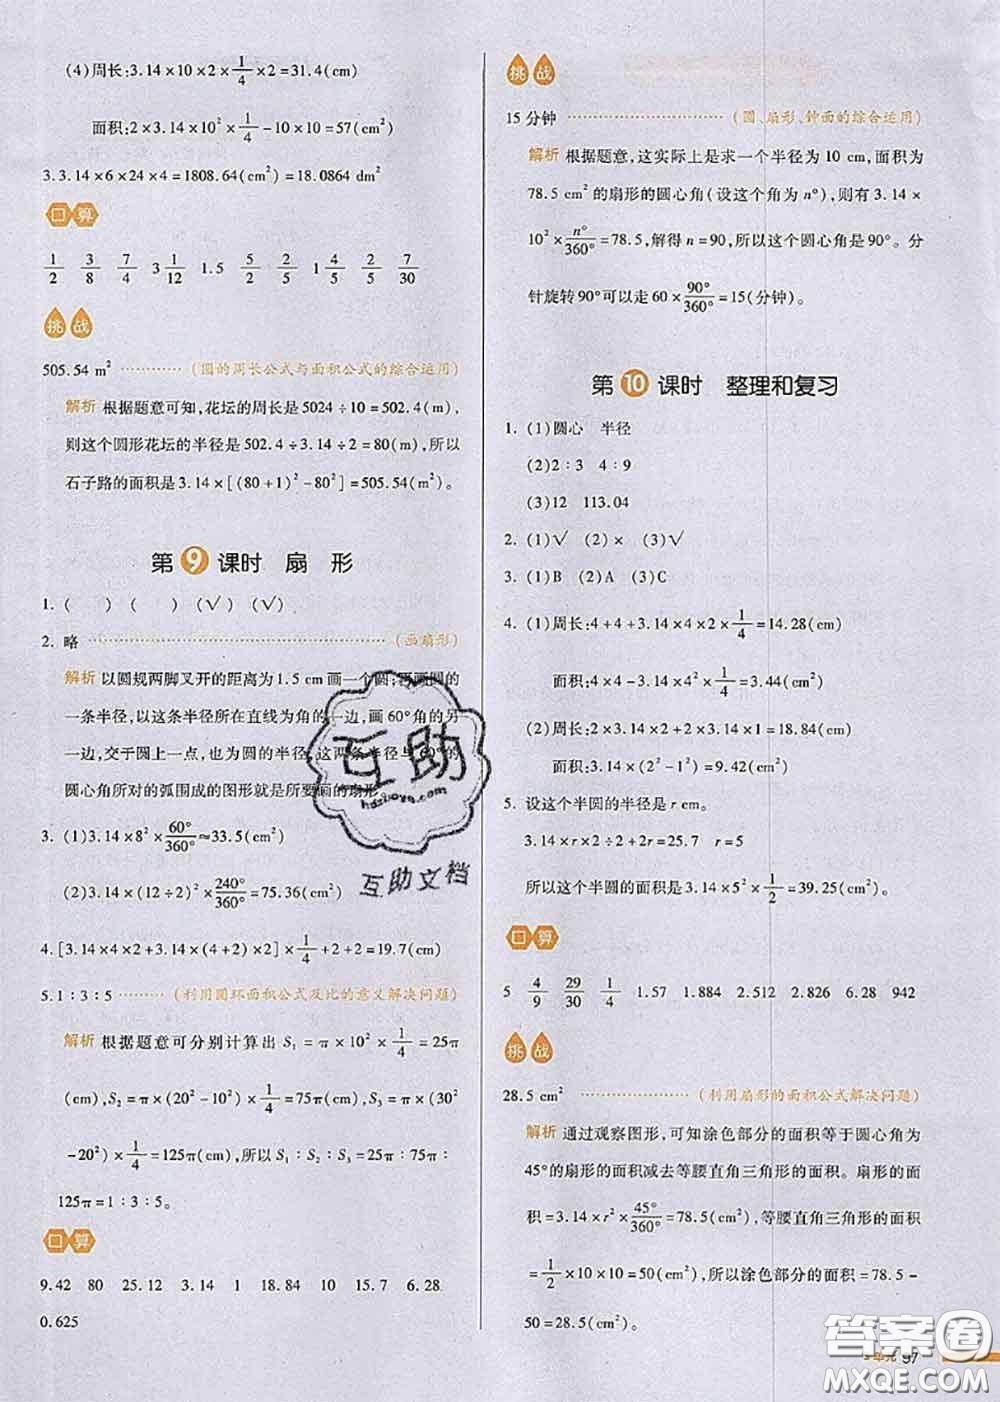 (4)周长:3.14×10×2×1/4×2=31.4(cm)
面积:2×3.14×10²×1/4-10×10=57(cm²)
3.3.14×6×24×4=1808.64(cm²)=18.0864 dm²
口算
1/2 3/8 7/4 3 1/12 1.5 5/2 2/5 1 4/5 2/5 7/30
挑战
505.54 m² ············(圆的周长公式与面积公式的综合运用)
解析 根据题意可知,花坛的周长是5024÷10=502.4(m),
则这个圆形花坛的半径是502.4÷3.14÷2=80(m),所以
石子路的面积是3.14×[(80+1)²-80²]=505.54(m²)。
第9课时 扇 形
1.( ) ( ) (√) (√)
2. 略 ············(画扇形)
解析 以圆规两脚叉开的距离为1.5 cm画一个圆;再画圆的
一条半径,以这条半径所在直线为角的一边,画60°角的另
一边,交于圆上一点,也为圆的半径,这两条半径与60°的
圆心角所对的弧围成的图形就是所要画的扇形
3. (1)3.14×8²×60°/360°≈33.5(cm²)
(2)3.14×(12÷2)²×240°/360°=75.36(cm²)
4.[3.14×4×2+3.14×(4+2)×2]×1/4+2+2=19.7(cm)
5.1∶3∶5 ·········(利用圆环面积公式及比的意义解决问题)
解析 根据题意可分别计算出 S₁=π×10²×1/4=25π
(cm),S₂=π×(20²-10²)×1/4=75π(cm),S₃=π×(30²
-20²)×1/4=125π(cm),所以 S₁∶S₂∶S₃=25π∶75π∶
125π=1∶3∶5。
口算
9.42 80 25.12 3.14 1 18.84 10 15.7 6.28
0.625
挑战
15分钟 ············(圆、扇形、钟面的综合运用)
解析 根据题意,这实际上是求一个半径为10 cm,面积为
78.5 cm²的扇形的圆心角(设这个角为n°),则有3.14×
10²×n°/360°=78.5,解得n=90,所以这个圆心角是90°。分
针旋转90°可以走60×90°/360°=15(分钟)。
第10课时 整理和复习
1. (1)圆心 半径
(2)2∶3 4∶9
(3)12 113.04
2. (1)√ (2)× (3)√
3. (1)B (2)A (3)C
4. (1)周长:4+4+3.14×4×2×1/4=14.28(cm)
面积:4×4-3.14×4²×1/4=3.44(cm²)
(2)周长:2×3.14×2+2×3.14×1=18.84(cm)
面积:3.14×(2²-1²)=9.42(cm²)
5. 设这个半圆的半径是r cm。
3.14×r×2÷2+2r=25.7 r=5
所以这个半圆的面积是3.14×5²×1/2=39.25(cm²)。
口算
5 4/9 29/30 1/4 1.57 1.884 2.512 2.826 6.28 942
挑战
28.5 cm² ············(利用扇形的面积公式解决问题)
解析 通过观察图形,可知涂色部分的面积等于圆心角为
45°的扇形的面积减去等腰直角三角形的面积。扇形的面
积=3.14×r²×45°/360°=78.5(cm²),等腰直角三角形的面积
=1/2×10×10=50(cm²),所以涂色部分的面积=78.5-
50=28.5(cm²)。
互助
hdzuoye.com
互助文档
单元 97
答案圈
MXQE.COM